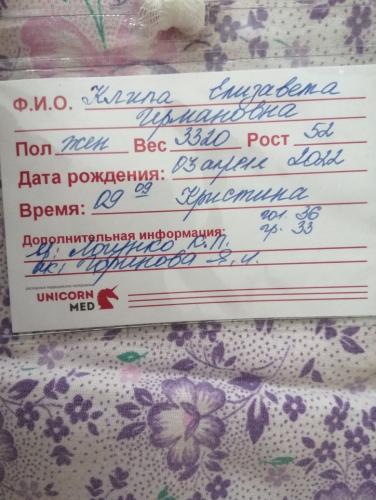 Ф.И.О. Клипа Елизавета
Ирмановна
Пол жен Вес 3320 Рост 52
Дата рождения: 03 апреля 2022
Время: 09 09 Кристина
гол. 36
Дополнительная информация: гр. 33
Ю. П.
UNICORN
MED